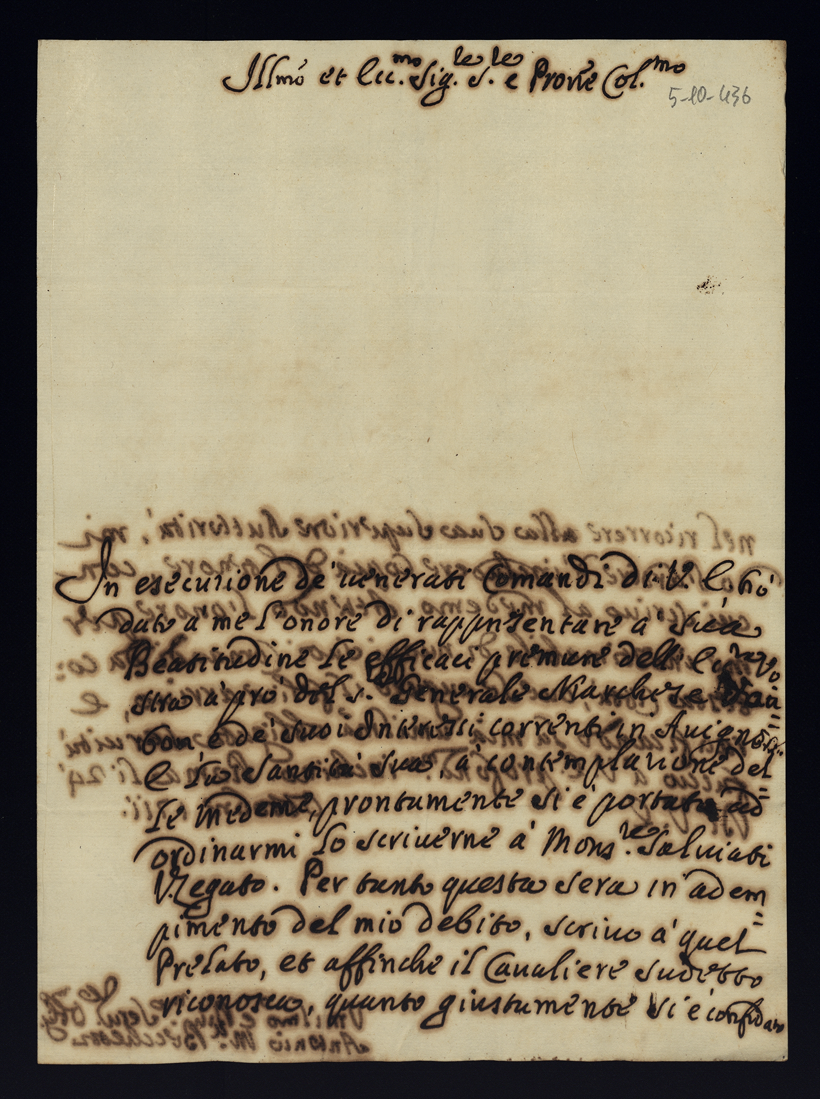 Illmo et Ecc.mo Sig.re S.re e Prone Col.mo
5-10-436
In esecuzione de' venerati Comandi di V. E. hò
dato a me l'onore di rappresentare a Sua
Beatitudine le efficaci premure dell' E. Vo
stra a' prò del S.r Generale Marchese
e de' suoi Interessi correnti in Avignone
e la Santità Sua, a' contemplazione del
le medeme, prontamente si è portata ad
ordinarmi lo scriverne a' Mons.re Salviati
V.Legato. Per tanto questa sera in adem
pimento del mio debito, scrivo a' quel
Prelato, et affinche il Cavaliere sudetto
riconosca, quanto giustamente si è confidato